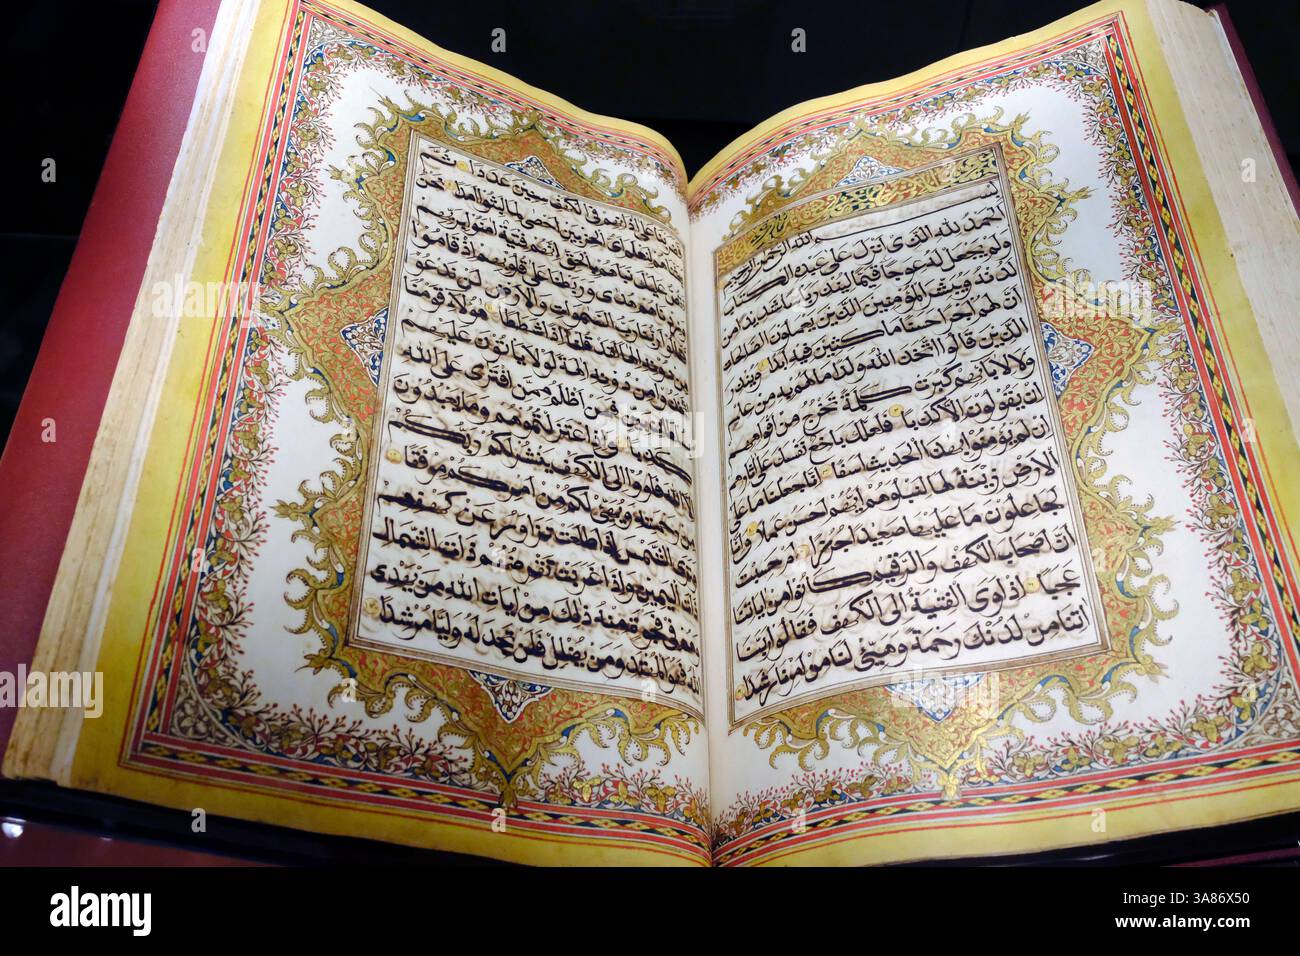 بسم الله الرحمن الرحيم
الحمد لله الذي انزل على عبده الكتاب
ولم يجعل له عوجا قيما لينذر باسا شديدا من
لدنه ويبشر المؤمنين الذين يعملون الصالحات
ان لهم اجرا حسنا ماكثين فيه ابدا وينذر
الذين قالوا اتخذ الله ولدا ما لهم به من علم
ولا لابائهم كبرت كلمة تخرج من افواههم
ان يقولون الا كذبا فلعلك باخع نفسك على اثارهم
ان لم يؤمنوا بهذا الحديث اسفا انا جعلنا ما على
الارض زينة لها لنبلوهم ايهم احسن عملا وانا
لجاعلون ما عليها صعيدا جرزا ام حسبت
ان اصحاب الكهف والرقيم كانوا من اياتنا
عجبا اذ اوى الفتية الى الكهف فقالوا ربنا
اتنا من لدنك رحمة وهيئ لنا من امرنا رشدا
فضربنا على اذانهم في الكهف سنين عددا ثم
بعثناهم لنعلم اي الحزبين احصى لما لبثوا امدا نحن
نقص عليك نباهم بالحق انهم فتية امنوا بربهم
وزدناهم هدى وربطنا على قلوبهم اذ قاموا
فقالوا ربنا رب السموات والارض لن ندعو
من دونه الها لقد قلنا اذا شططا هؤلاء قومنا
اتخذوا من دونه الهة لولا ياتون عليهم
بسلطان بين فمن اظلم ممن افترى على الله
كذبا واذ اعتزلتموهم وما يعبدون
الا الله فاووا الى الكهف ينشر لكم ربكم
من رحمته ويهيئ لكم من امركم مرفقا
وترى الشمس اذا طلعت تزاور عن كهفهم
ذات اليمين واذا غربت تقرضهم ذات الشمال
وهم في فجوة منه ذلك من ايات الله من يهدى
الله فهو المهتد ومن يضلل فلن تجد له وليا مرشدا
alamy
Image ID: 3A86X50
www.alamy.com